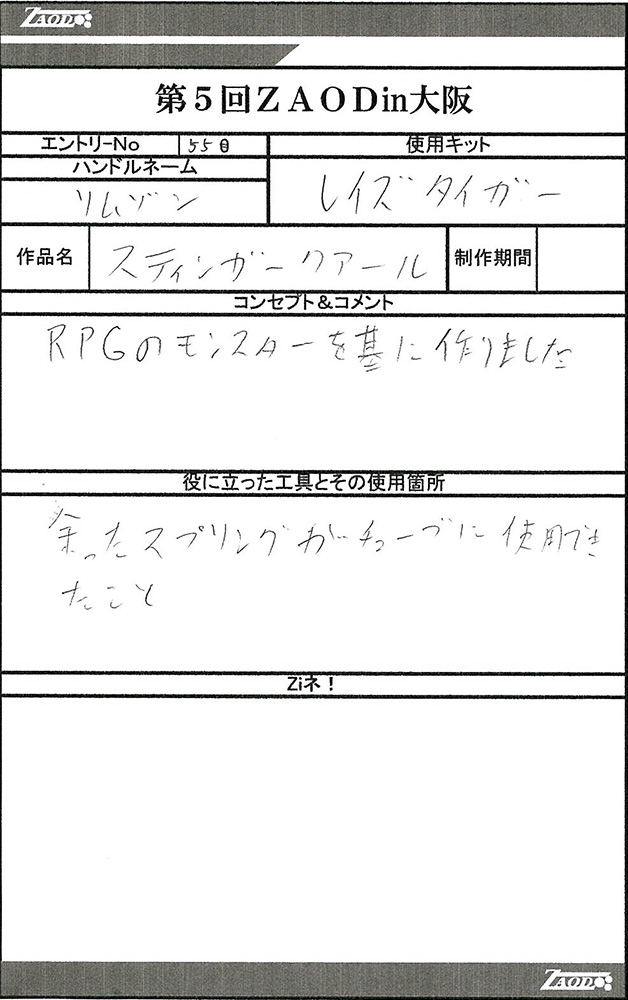 ZAOD
第5回ZAODin大阪
エントリーNo 550 使用キット
ハンドルネーム
リムゾン レイズタイガー
作品名 スティンガークアール 制作期間
コンセプト&コメント
RPGのモンスターを基に作りました
役に立った工具とその使用箇所
余ったスプリングがチューブに使用でき
たこと
Ziネ!
ZAOD